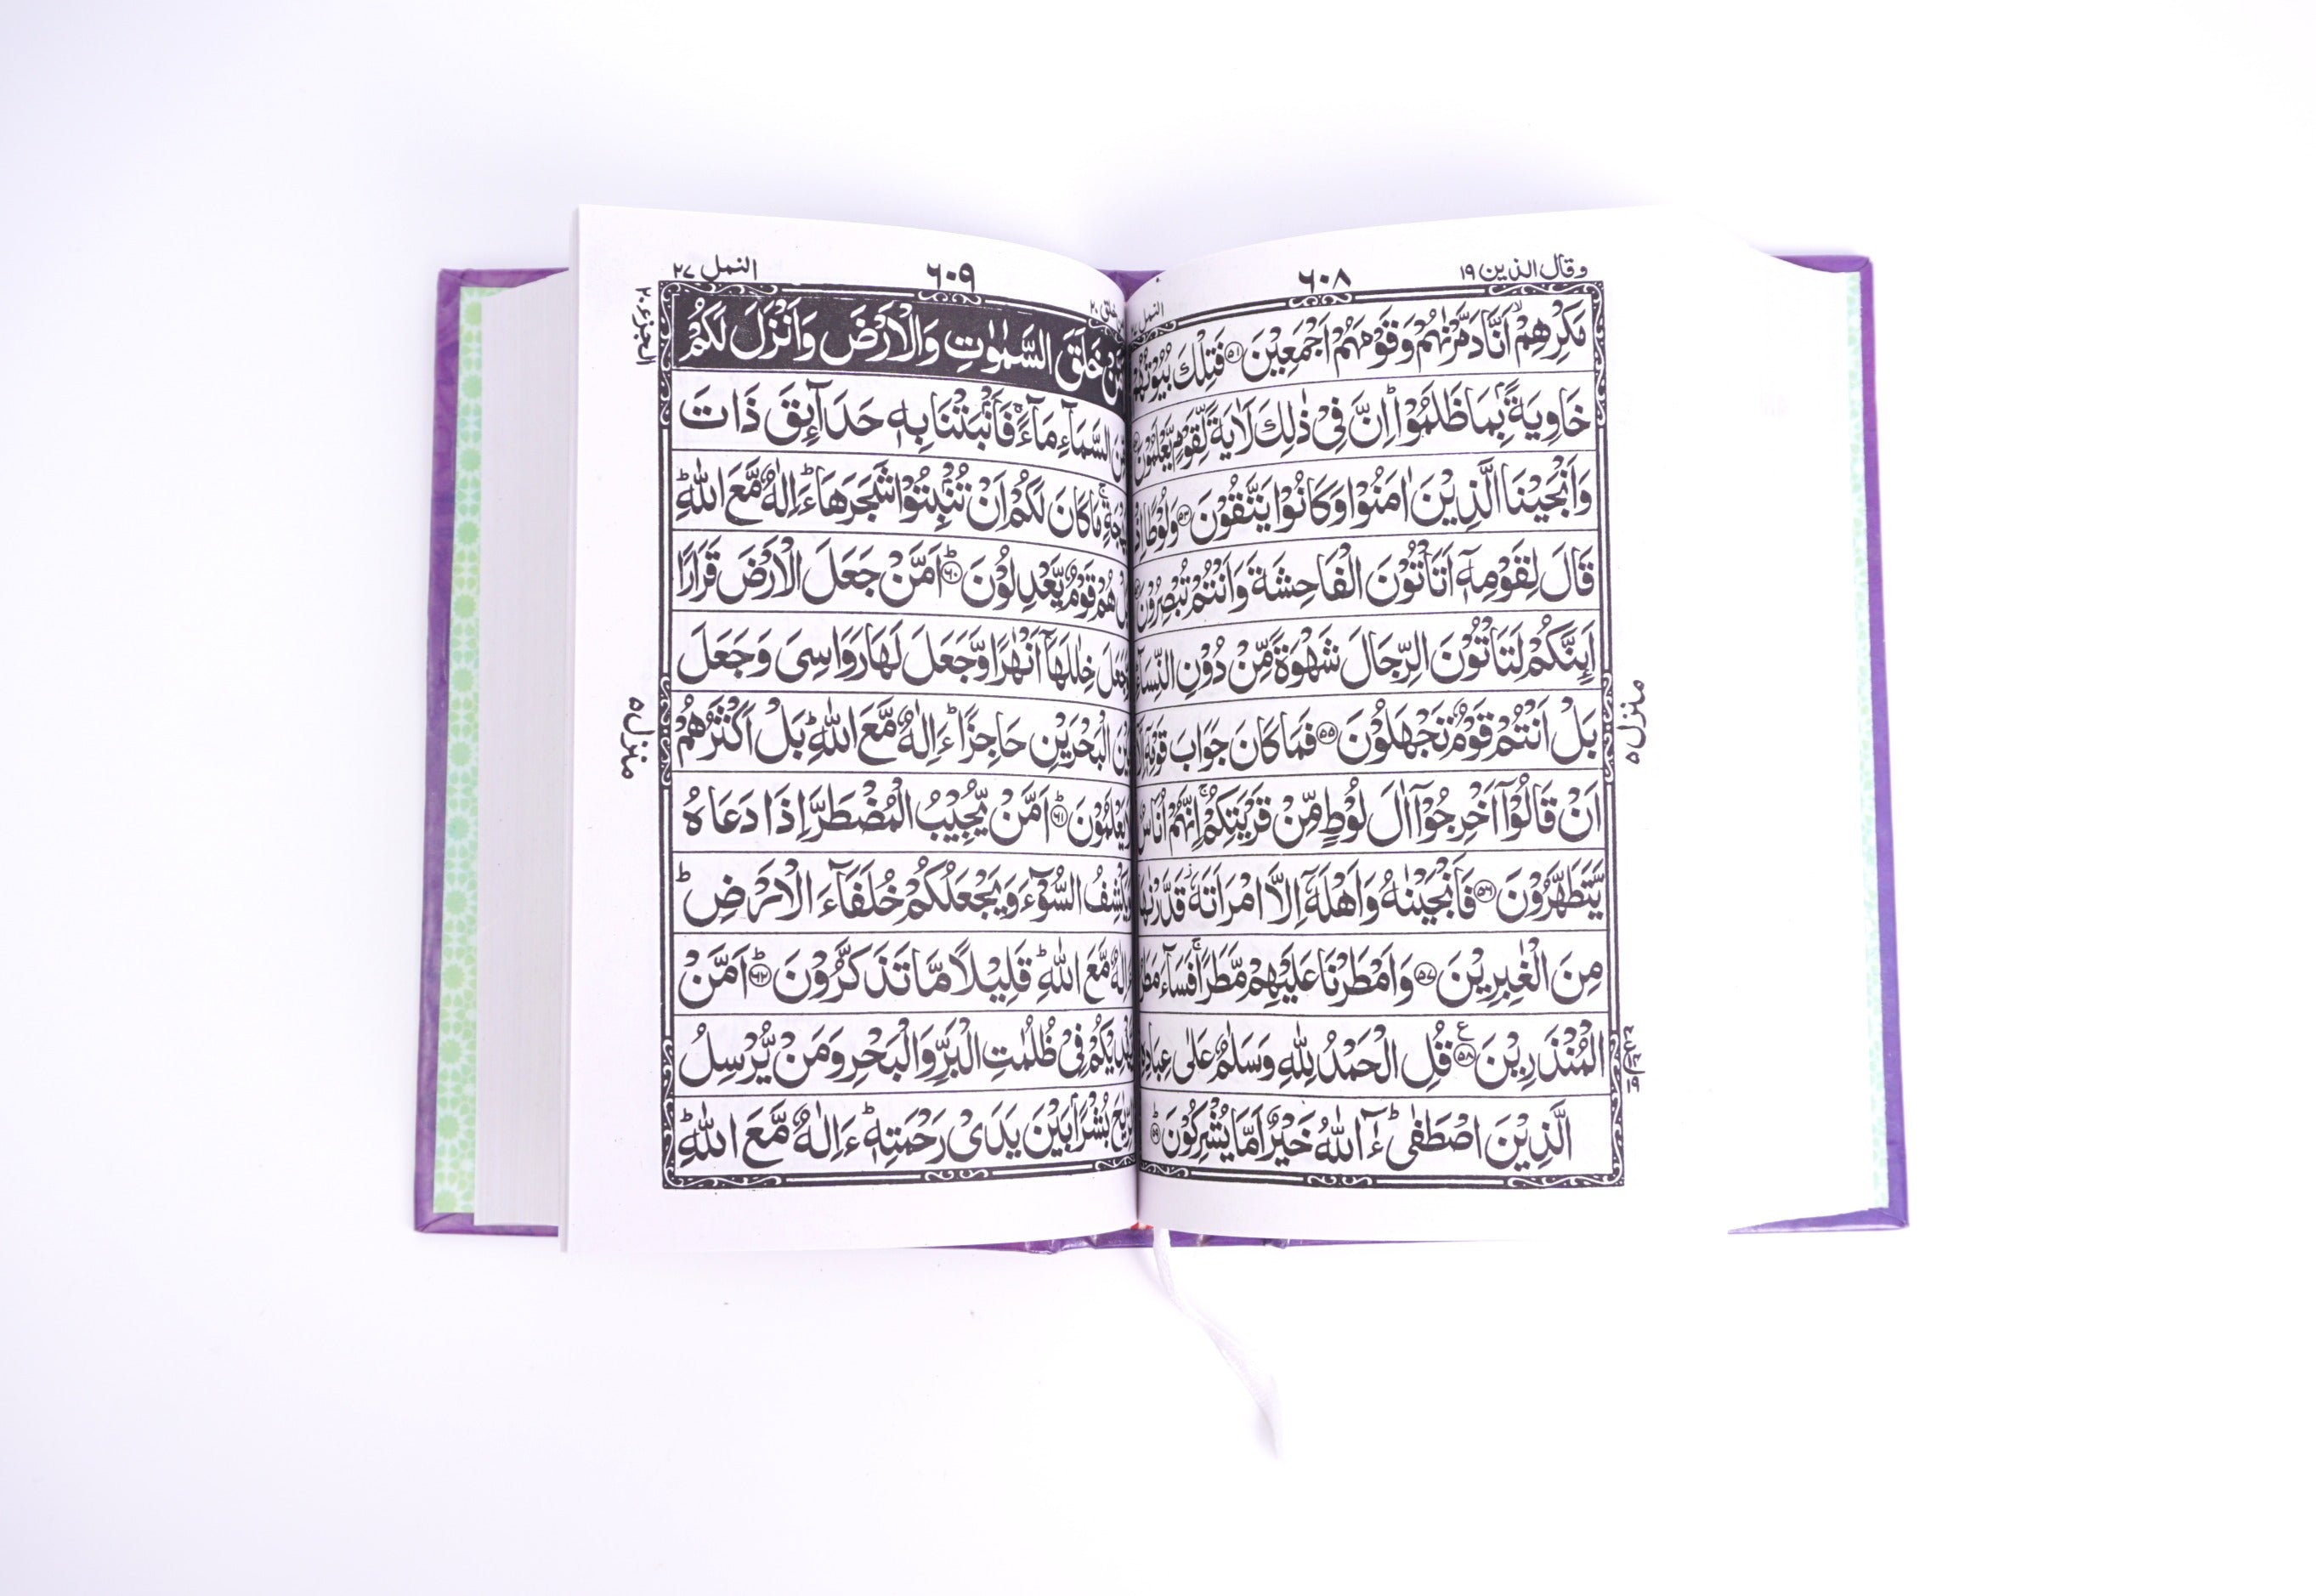 وقال الذين ١٩
٦٠٨
النمل
مَكْرِهِمْ ۙ اَنَّا دَمَّرْنٰهُمْ وَقَوْمَهُمْ اَجْمَعِيْنَ ﴿۵۱﴾ فَتِلْكَ بُيُوْتُهُمْ
خَاوِيَةًۢ بِمَا ظَلَمُوْا ؕ اِنَّ فِیْ ذٰلِكَ لَاٰيَةً لِّقَوْمٍ يَّعْلَمُوْنَ
وَاَنْجَيْنَا الَّذِيْنَ اٰمَنُوْا وَكَانُوْا يَتَّقُوْنَ ﴿۵۳﴾ وَلُوْطًا اِذْ
قَالَ لِقَوْمِهٖۤ اَتَاْتُوْنَ الْفَاحِشَةَ وَاَنْتُمْ تُبْصِرُوْنَ
اَئِنَّكُمْ لَتَاْتُوْنَ الرِّجَالَ شَهْوَةً مِّنْ دُوْنِ النِّسَآءِ
بَلْ اَنْتُمْ قَوْمٌ تَجْهَلُوْنَ ﴿۵۵﴾ فَمَا كَانَ جَوَابَ قَوْمِهٖۤ
اَنْ قَالُوْۤا اَخْرِجُوْۤا اٰلَ لُوْطٍ مِّنْ قَرْيَتِكُمْ ۚ اِنَّهُمْ اُنَاسٌ
يَّتَطَهَّرُوْنَ ﴿۵۶﴾ فَاَنْجَيْنٰهُ وَاَهْلَهٗۤ اِلَّا امْرَاَتَهٗ ؗ قَدَّرْنٰهَا
مِنَ الْغٰبِرِيْنَ ﴿۵۷﴾ وَاَمْطَرْنَا عَلَيْهِمْ مَّطَرًا ۚ فَسَآءَ مَطَرُ
الْمُنْذَرِيْنَ ﴿۵۸﴾ قُلِ الْحَمْدُ لِلّٰهِ وَسَلٰمٌ عَلٰی عِبَادِهِ
الَّذِيْنَ اصْطَفٰی ؕ ءٰٓاللّٰهُ خَيْرٌ اَمَّا يُشْرِكُوْنَ ﴿۵۹﴾
منزل ۵
ع
١٩
النمل ٢٧
٦٠٩
خلق ٢٠
الجزء ٢٠
اَمَّنْ خَلَقَ السَّمٰوٰتِ وَالْاَرْضَ وَاَنْزَلَ لَكُمْ
مِّنَ السَّمَآءِ مَآءً ۚ فَاَنْۢبَتْنَا بِهٖ حَدَآئِقَ ذَاتَ
بَهْجَةٍ ۚ مَا كَانَ لَكُمْ اَنْ تُنْۢبِتُوْا شَجَرَهَا ؕ ءَاِلٰهٌ مَّعَ اللّٰهِ ؕ
بَلْ هُمْ قَوْمٌ يَّعْدِلُوْنَ ﴿۶۰﴾ اَمَّنْ جَعَلَ الْاَرْضَ قَرَارًا
وَّجَعَلَ خِلٰلَهَاۤ اَنْهٰرًا وَّجَعَلَ لَهَا رَوَاسِیَ وَجَعَلَ
بَيْنَ الْبَحْرَيْنِ حَاجِزًا ؕ ءَاِلٰهٌ مَّعَ اللّٰهِ ؕ بَلْ اَكْثَرُهُمْ
لَا يَعْلَمُوْنَ ﴿۶۱﴾ اَمَّنْ يُّجِيْبُ الْمُضْطَرَّ اِذَا دَعَاهُ
وَيَكْشِفُ السُّوْٓءَ وَيَجْعَلُكُمْ خُلَفَآءَ الْاَرْضِ ؕ
ءَاِلٰهٌ مَّعَ اللّٰهِ ؕ قَلِيْلًا مَّا تَذَكَّرُوْنَ ﴿۶۲﴾ اَمَّنْ
يَّهْدِيْكُمْ فِیْ ظُلُمٰتِ الْبَرِّ وَالْبَحْرِ وَمَنْ يُّرْسِلُ
الرِّيٰحَ بُشْرًۢا بَيْنَ يَدَیْ رَحْمَتِهٖ ؕ ءَاِلٰهٌ مَّعَ اللّٰهِ ؕ
منزل ۵